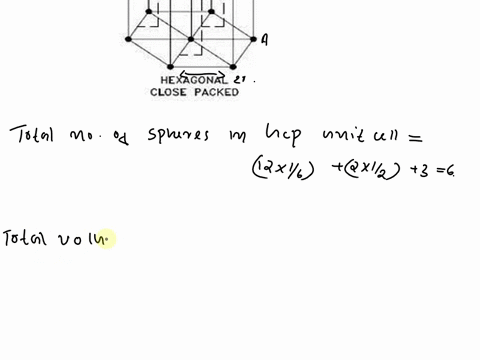 A
HEXAGONAL 2r.
CLOSE PACKED
Total no. of spheres in hcp unit cell =
(12×1/6) +(2×1/2) +3 =6.
Total volu